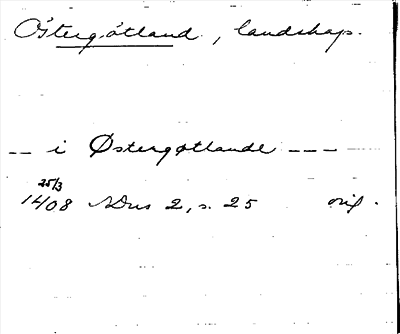 Östergötland, landskap.
-- i Østergøtlande ---
25/3
1408 NDns 2, s. 25 orig.